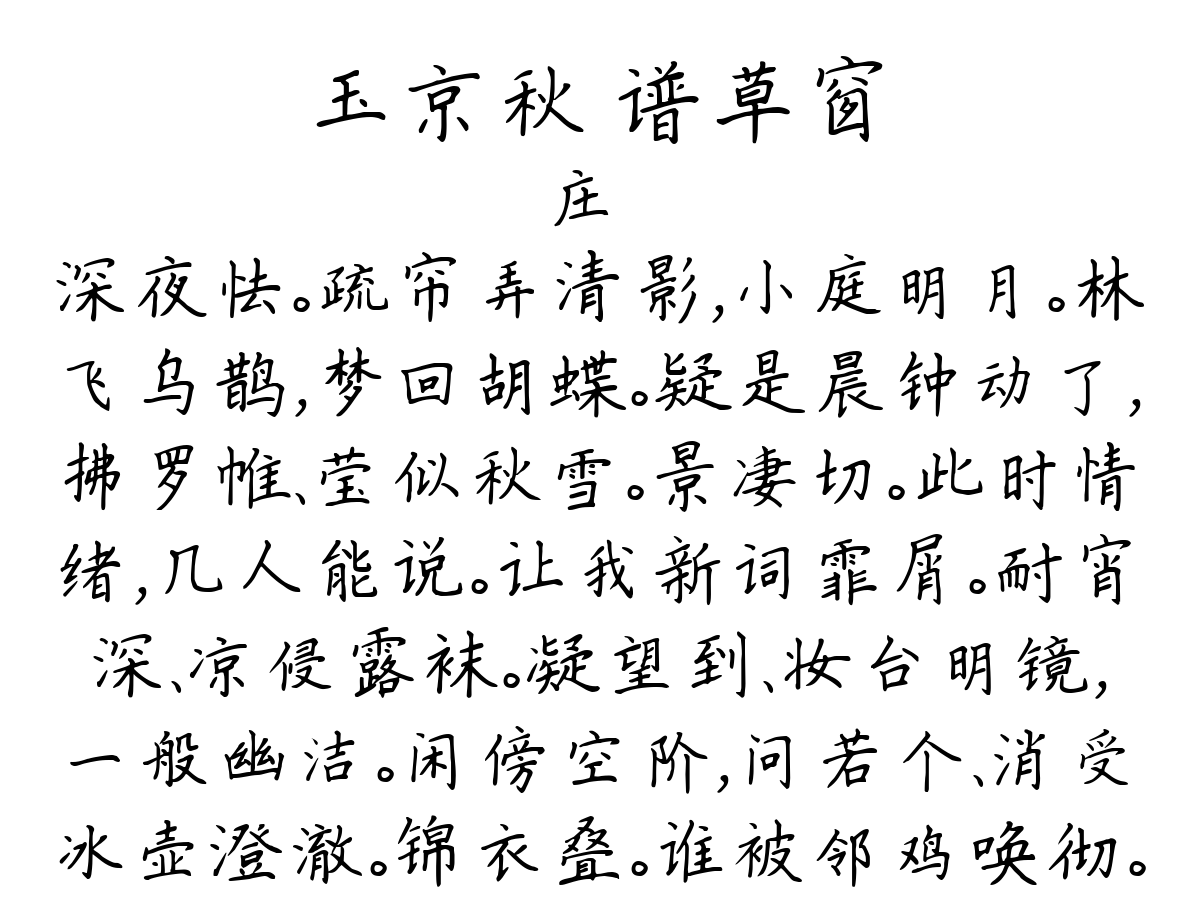 玉京秋 谱草窗
庄
深夜怯。疏帘弄清影,小庭明月。林
飞乌鹊,梦回胡蝶。疑是晨钟动了,
拂罗帷、莹似秋雪。景凄切。此时情
绪,几人能说。让我新词霏屑。耐宵
深、凉侵露袜。凝望到、妆台明镜,
一般幽洁。闲傍空阶,问若个、消受
冰壶澄澈。锦衣叠。谁被邻鸡唤彻。